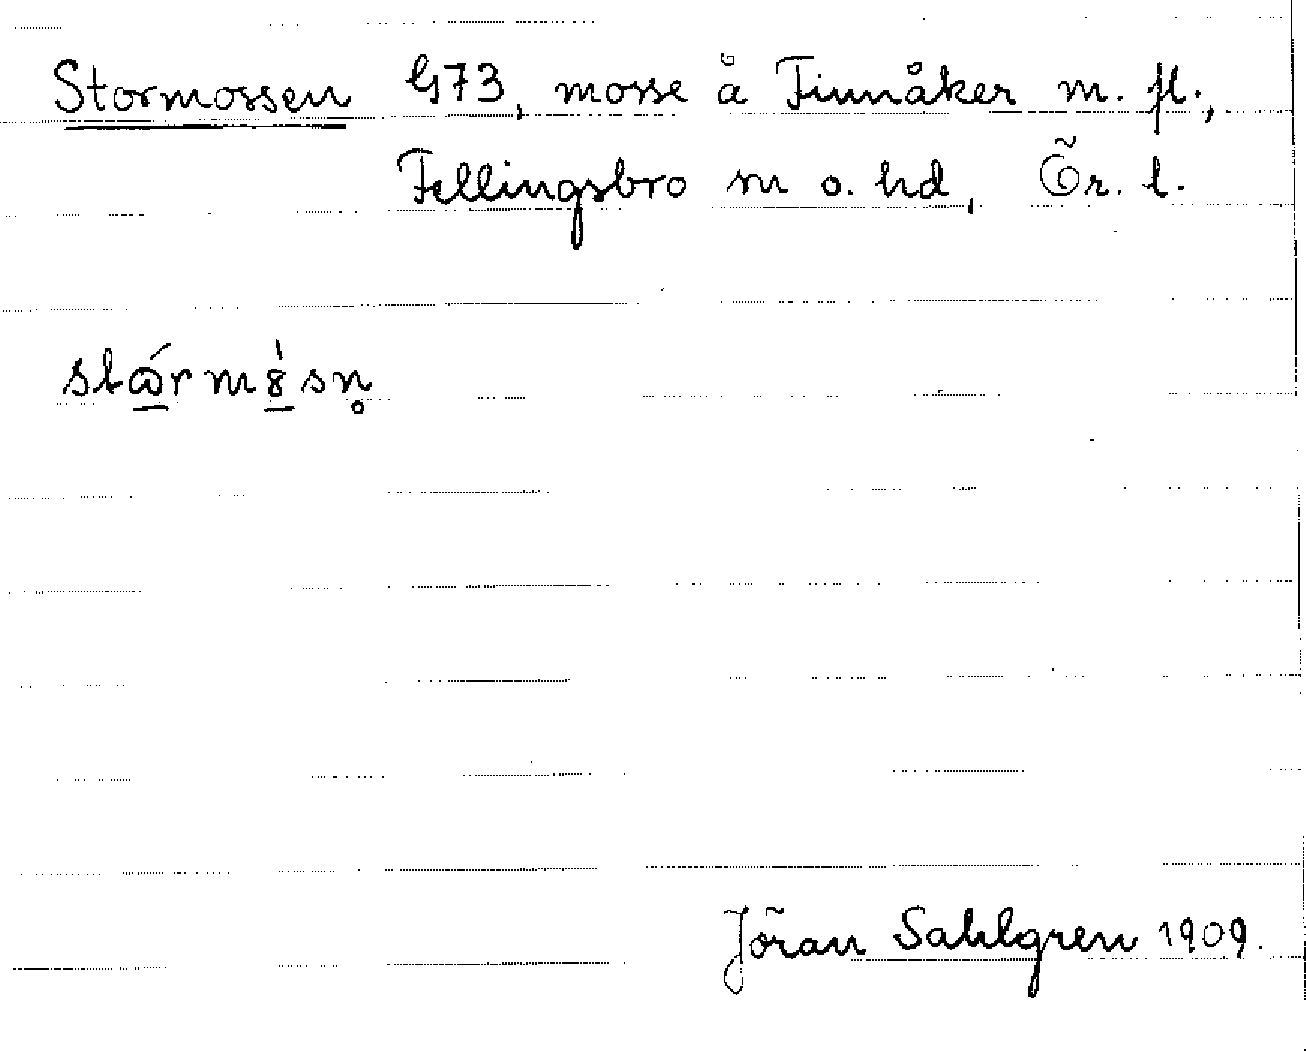 Stormossen G73, mosse å Finnåker m. fl.,
Fellingsbro sn o. hd, Ör. l.
Jöran Sahlgren 1909.